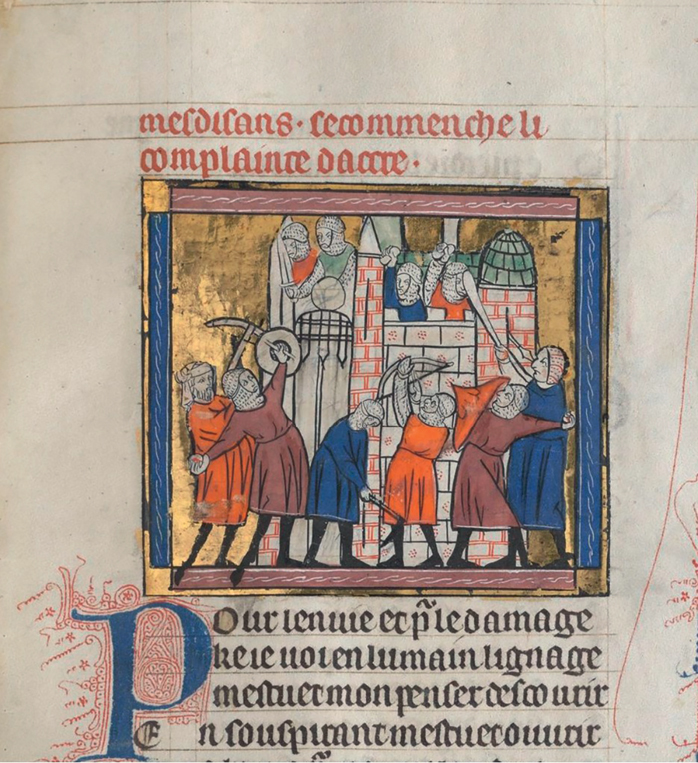 mesdisans · ce commenche li
complainte dacre ·
Pour lenuie et p̃ le damage
ke ie uoi en lumain lignage
mestuet mon penser descouurir
En souspirant mestuet ouurir